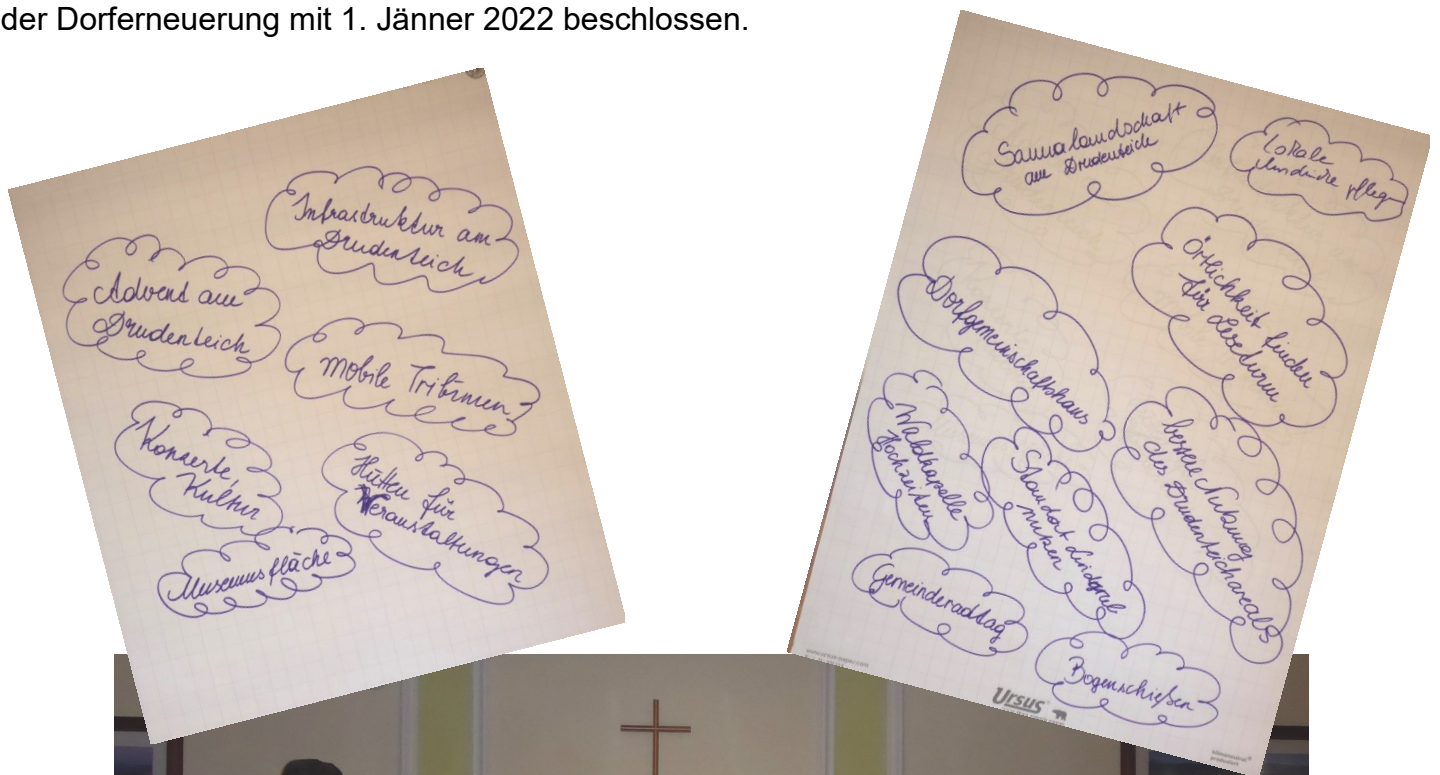 der Dorferneuerung mit 1. Jänner 2022 beschlossen.
Infrastruktur am
Drudenteich
Advent am
Drudenteich
Mobile Tribünen
Konzerte,
Kultur
Hütten für
Veranstaltungen
Museumsfläche
Saunalandschaft
am Drudenteich
Lokale
pflegen
Örtlichkeit finden
für Leseturm
Dorfgemeinschaftshaus
Waldkapelle
Hochzeiten
Standort
nutzen
bessere Nutzung
des Drudenteichareals
Gemeinderadtag
Bogenschießen
Ursus